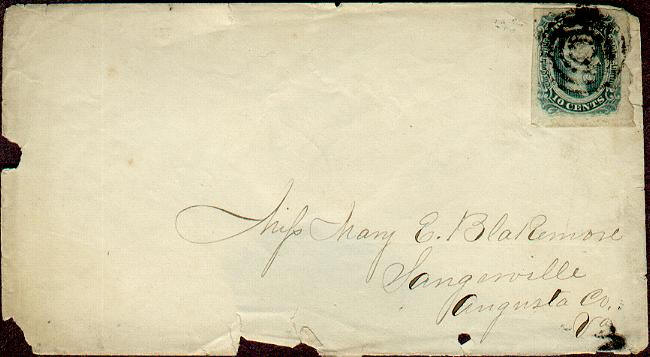 10 CENTS
Miss Mary E. Blakemore
Sangerville
Augusta Co.
Va